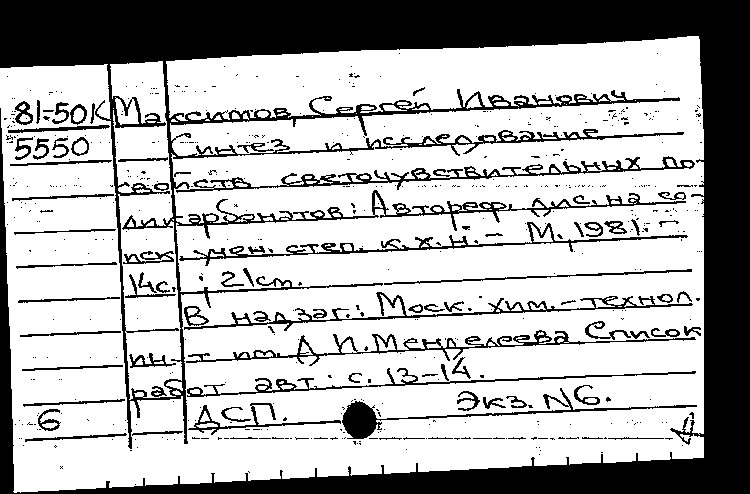 81-50К Максимов, Сергей Иванович
5550 Синтез и исследование
свойств светочувствительных по-
ликарбонатов: Автореф. дис. на со-
иск. учен. степ. к.х.н. - М., 1981. -
14с. ; 21см.
В надзаг.: Моск. хим.-технол.
ин-т им. Д И. Менделеева Список
работ авт.: с. 13-14.
6 ДСП. Экз. N6.